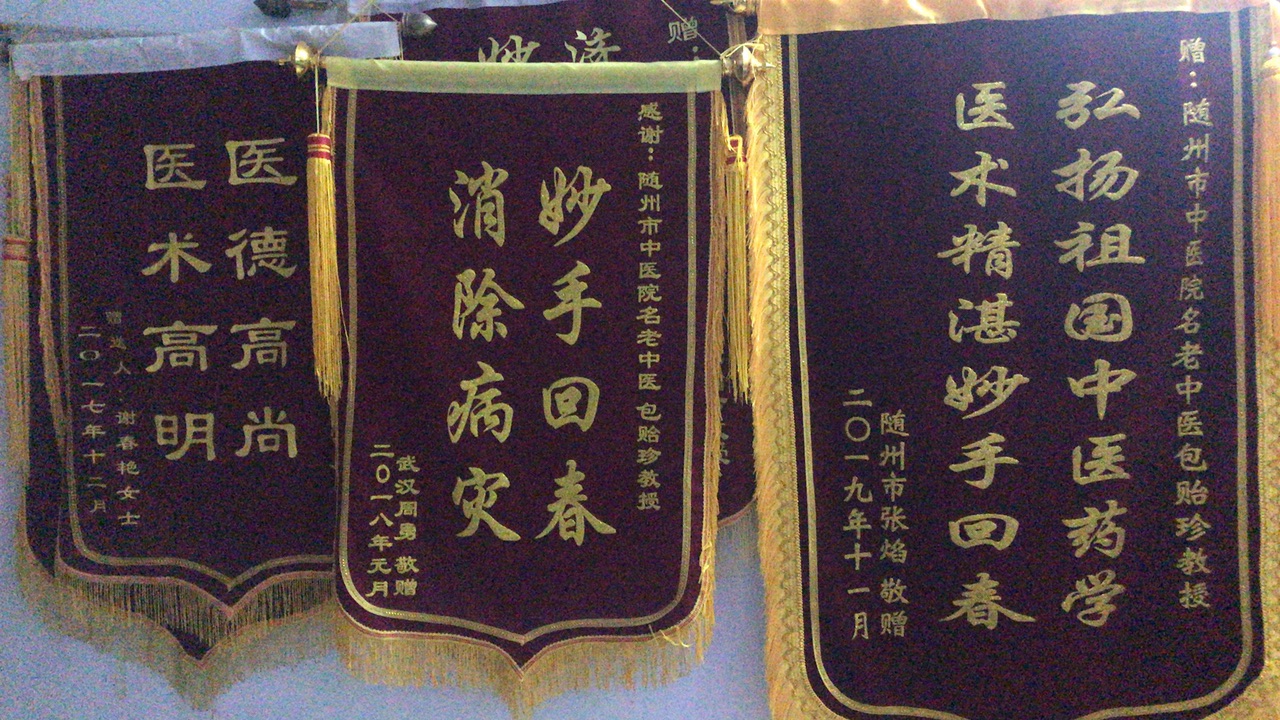 医德高尚
医术高明
赠送人：谢春艳女士
二〇一七年十二月
赠：
妙
济
感谢：随州市中医院名老中医包贻珍教授
妙手回春
消除病灾
武汉周勇敬赠
二〇一八年元月
赠：随州市中医院名老中医包贻珍教授
弘扬祖国中医药学
医术精湛妙手回春
随州市张焰敬赠
二〇一九年十一月